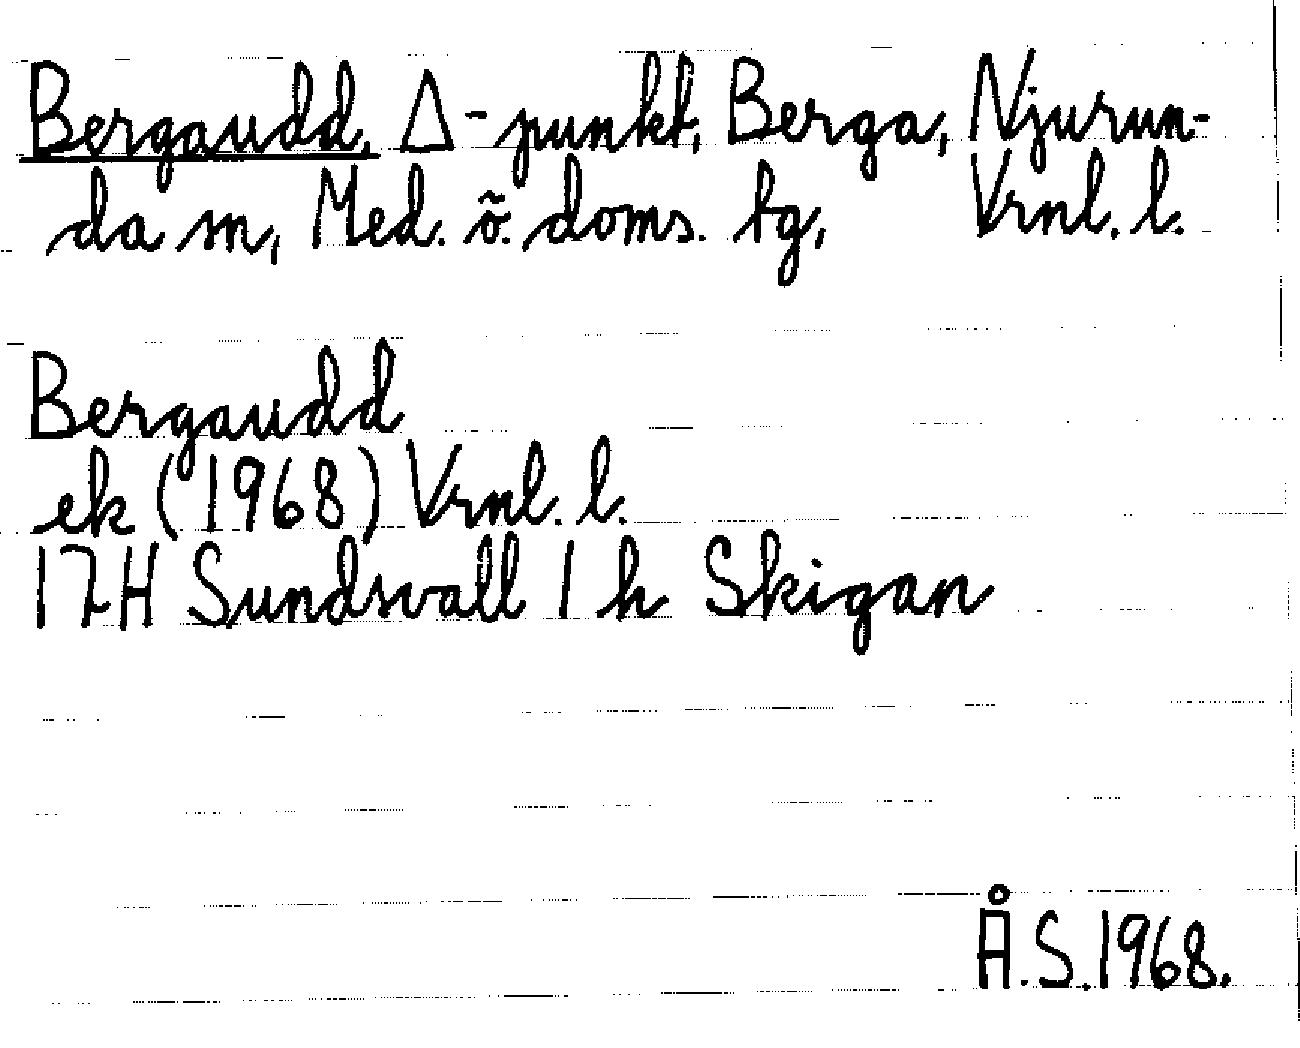 Bergaudd, Δ-punkt, Berga, Njurun-
da sn, Med. ö. doms. tg, Vrnl. l.
Bergaudd
ek (1968) Vrnl. l.
17H Sundsvall 1 h Skigan
Å.S.1968.